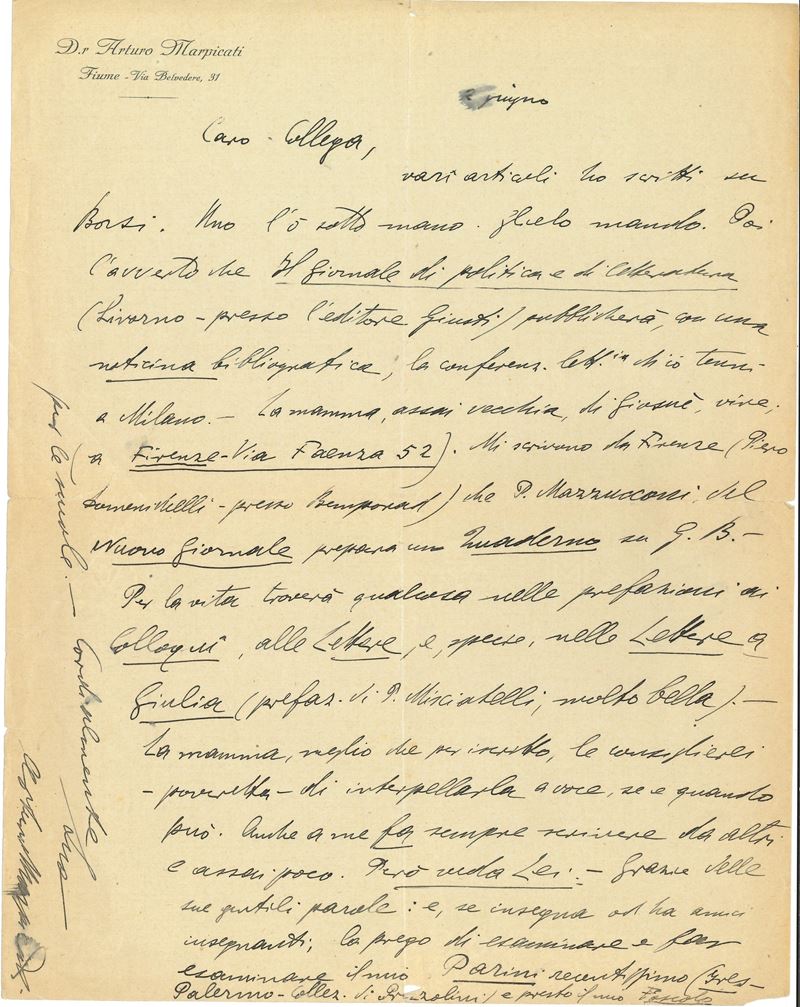 D.r Arturo Marpicati
Fiume - Via Belvedere, 31
2 giugno
Caro Collega,
vari articoli ho scritti su
Borsi. Uno l'ò sotto mano. Glielo mando. Poi
l'avverto che Il Giornale di politica e di letteratura
(Livorno - presso l'editore Giusti) pubblicherà, con una
noticina bibliografica, la conferenz. lett.ia ch'io tenni
a Milano. - La mamma, assai vecchia, di Giosuè, vive,
a Firenze - Via Faenza 52). Mi scrivono da Firenze (Piero
Domenichelli - presso Bemporad) che P. Mazzucconi, del
Nuovo Giornale prepara un Quaderno su G. B. -
Per la vita troverà qualcosa nelle prefazioni ai
Colloqui, alle Lettere, e, specie, nelle Lettere a
Giulia (prefaz. di P. Misciatelli, molto bella). -
La mamma, meglio che per iscritto, le consiglierei
- poveretta - di interpellarla a voce, se e quando
può. Anche a me fa sempre scrivere da altri
e assai poco. Però veda Lei. - Grazie delle
sue gentili parole: e, se insegna od ha amici
insegnanti, la prego di esaminare e far
esaminare il mio Parini recentissimo (Ires -
Palermo - Collez. di Prezzolini) e presto il mio Foscolo
per le scuole. - Cordialmente
suo
Arturo Marpicati